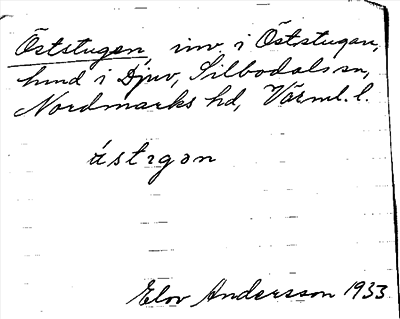 Öststugen, inv. i Öststugan,
hmd i Djuv, Silbodals sn,
Nordmarks hd, Värml. l.
ástzgon
Elov Andersson 1933